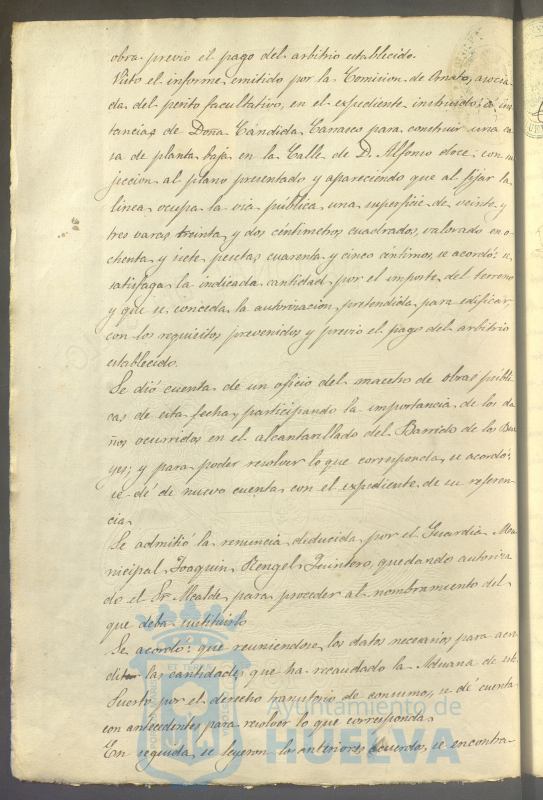 obra previo el pago del arbitrio establecido.
Visto el informe emitido por la Comision de Ornato, asocia-
da del perito facultativo, en el expediente instruido á ins
tancias de Doña Cándida Carrasco para construir una ca
sa de planta baja en la Calle de D. Alfonso doce; con su
jeccion al plano presentado y apareciendo que al fijar la
linea ocupa la via pública una superficie de veinte y
tres varas treinta y dos centimetros cuadrados, valorado en o-
chenta y siete pesetas cuarenta y cinco céntimos, se acordó: se
satisfaga la indicada cantidad por el importe del terreno
y que se conceda la autorizacion pretendida para edificar
con los requisitos prevenidos y previo el pago del arbitrio
establecido.
Se dió cuenta de un oficio del maestro de obras públi-
cas de esta fecha, participando la importancia de los da
ños ocurridos en el alcantarillado del Barrido de los
yes; y para poder resolver lo que corresponda, se acordó:
se dé de nuevo cuenta con el expediente de su referen-
cia.
Se admitió la renuncia deducida por el Guardia Mu-
nicipal Joaquin Rengel Quintero, quedando autoriza
do el Sr Alcalde para proceder al nombramiento del
que deba sustituirlo
Se acordó: que reuniendose los datos necesarios para acre
ditar las cantidades que ha recaudado la Aduana de este
Puerto por el derecho transitorio de consumos, se dé cuenta
con antecedentes para resolver lo que corresponda.
En seguida se leyeron los anteriores acuerdos, se encontra-
Ayuntamiento de
HUELVA